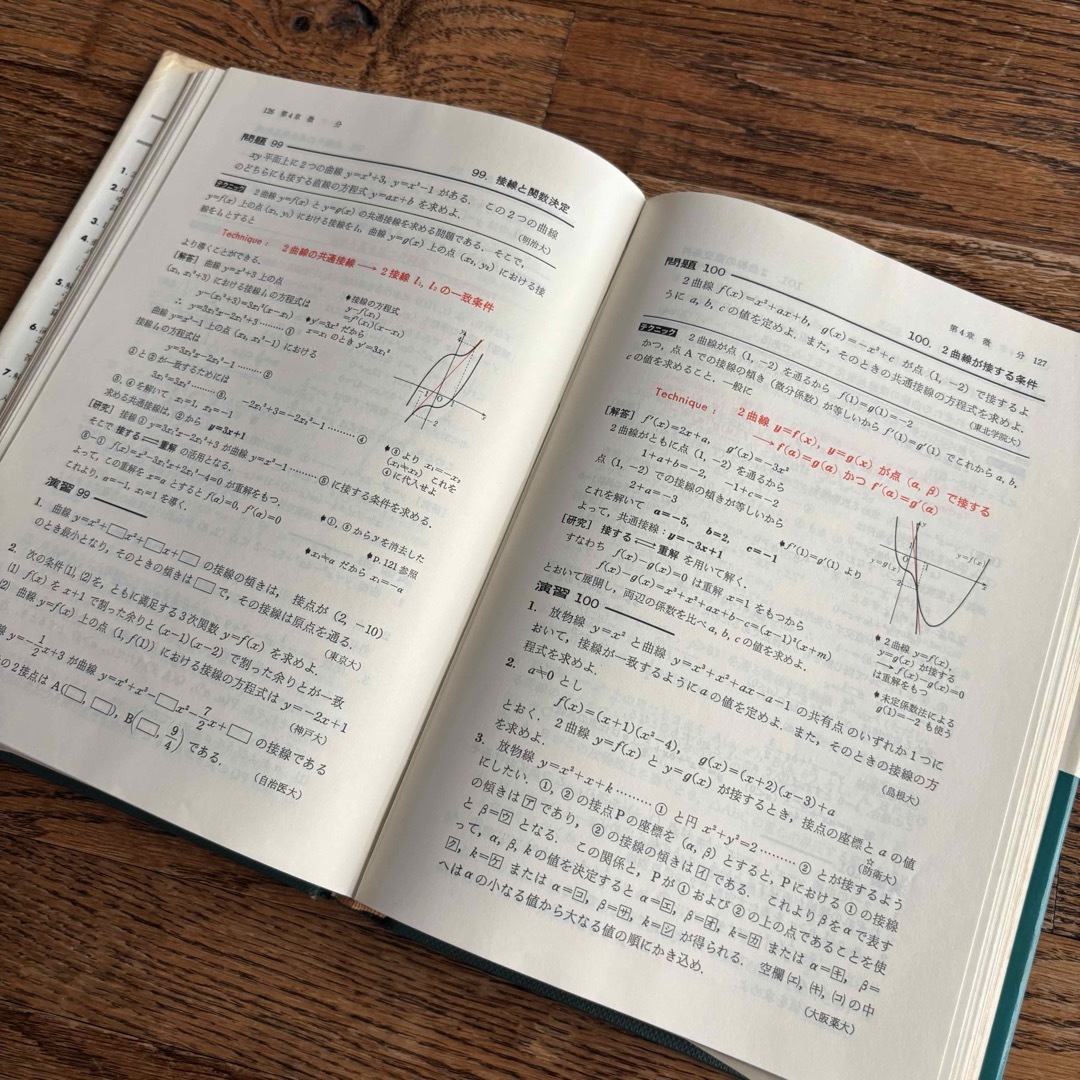 126 第4章 微 分
99. 接線と関数決定
問題 99
xy平面上に2つの曲線 y=x³+3, y=x³−1 がある. この2つの曲線
のどちらにも接する直線の方程式 y=ax+b を求めよ.
(明治大)
テクニック 2曲線 y=f(x) と y=g(x) の共通接線を求める問題である. そこで,
y=f(x) 上の点 (x₁, y₁) における接線を l₁, 曲線 y=g(x) 上の点 (x₂, y₂) における接
線を l₂ とすると
Technique : 2曲線の共通接線 ⟶ 2接線 l₁, l₂ の一致条件
より導くことができる.
[解答] 曲線 y=x³+3 上の点
(x₁, x₁³+3) における接線 l₁ の方程式は
y−(x₁³+3)=3x₁²(x−x₁)
∴ y=3x₁²x−2x₁³+3 ……… ①
曲線 y=x³−1 上の点 (x₂, x₂³−1) における
接線 l₂ の方程式は
y=3x₂²x−2x₂³−1 ……… ②
①と②が一致するためには
3x₁²=3x₂² ……… ③, −2x₁³+3=−2x₂³−1 ……… ④
③, ④を解いて x₁=1, x₂=−1
求める共通接線は, ②から y=3x+1
♦接線の方程式
y−f(x₁)
=f′(x₁)(x−x₁)
♦y′=3x² だから
x=x₁ のとき y′=3x₁²
♦③より x₁=−x₂
(x₁≠x₂) これを
④に代入せよ
[研究] 接線①y=3x₁²x−2x₁³+3 が曲線 y=x³−1 ……… ⑤ に接する条件を求める.
そこで 接する⇄重解 の活用となる.
⑤−① f(x)=x³−3x₁²x+2x₁³−4=0 が重解をもつ.
よって, この重解を x=α とすると f(α)=0, f′(α)=0
これより, α=−1, x₁=1 を導く.
♦①, ⑤から y を消去した
♦p.121 参照
♦x₁≠α だから x₁=−α
演習 99
1. 曲線 y=x³+□x²+□x+□ の接線の傾きは, 接点が (2, −10)
のとき最小となり, そのときの傾きは□で, その接線は原点を通る.
(東京大)
2. 次の条件(1), (2)を, ともに満足する3次関数 y=f(x) を求めよ.
(1) f(x) を x+1 で割った余りと (x−1)(x−2) で割った余りとが一致
曲線 y=f(x) 上の点 (1, f(1)) における接線の方程式は y=−2x+1
(神戸大)
線 y=−1/2x+3 が曲線 y=x⁴+x³−□x²−7/2x+□ の接線である
の2接点は A(□, □), B(□, 9/4) である.
(自治医大)
第4章 微 分 127
100. 2曲線が接する条件
問題 100
2曲線 f(x)=x²+ax+b, g(x)=−x³+c が点 (1, −2) で接するよ
うに a, b, c の値を定めよ. また, そのときの共通接線の方程式を求めよ.
(東北学院大)
テクニック 2曲線が点 (1, −2) を通るから f(1)=g(1)=−2
かつ, 点Aでの接線の傾き (微分係数) が等しいから f′(1)=g′(1) でこれから a, b,
c の値を求めること. 一般に
Technique : 2曲線 y=f(x), y=g(x) が点 (α, β) で接する
⟶ f(α)=g(α) かつ f′(α)=g′(α)
[解答] f′(x)=2x+a, g′(x)=−3x²
2曲線がともに点 (1, −2) を通るから
1+a+b=−2, −1+c=−2
点 (1, −2) での接線の傾きが等しいから
2+a=−3
♦f′(1)=g′(1) より
これを解いて a=−5, b=2, c=−1
よって, 共通接線 : y=−3x+1
[研究] 接する⇄重解 を用いて解く.
すなわち f(x)−g(x)=0 は重解 x=1 をもつから
f(x)−g(x)=x³+x²+ax+b−c=(x−1)²(x+m)
とおいて展開し, 両辺の係数を比べ a, b, c の値を求めよ.
♦2曲線 y=f(x),
y=g(x) が接する
⟶f(x)−g(x)=0
は重解をもつ
♦未定係数法による
g(1)=−2 も使う
演習 100
1. 放物線 y=x² と曲線 y=x³+x²+ax−a−1 の共有点のいずれか1つに
おいて, 接線が一致するように a の値を定めよ. また, そのときの接線の方
程式を求めよ.
(島根大)
2. a≠0 とし
f(x)=(x+1)(x²−4), g(x)=(x+2)(x−3)+a
とおく. 2曲線 y=f(x) と y=g(x) が接するとき, 接点の座標と a の値
を求めよ.
(防衛大)
3. 放物線 y=x²+x+k ……… ① と円 x²+y²=2 ……… ② とが接するよう
にしたい. ①, ②の接点Pの座標を (α, β) とすると, Pにおける①の接線
の傾きは ア であり, ②の接線の傾きは イ である. これより β を α で表す
と β=ウ となる. この関係と, Pが①および②の上の点であることを使
って, α, β, k の値を決定すると α=エ, β=オ, k=カ または α=キ, β=
ク, k=ケ または α=コ, β=サ, k=シ が得られる. 空欄(エ), (キ), (コ)の中
へは α の小なる値から大なる値の順にかき込め.
(大阪薬大)